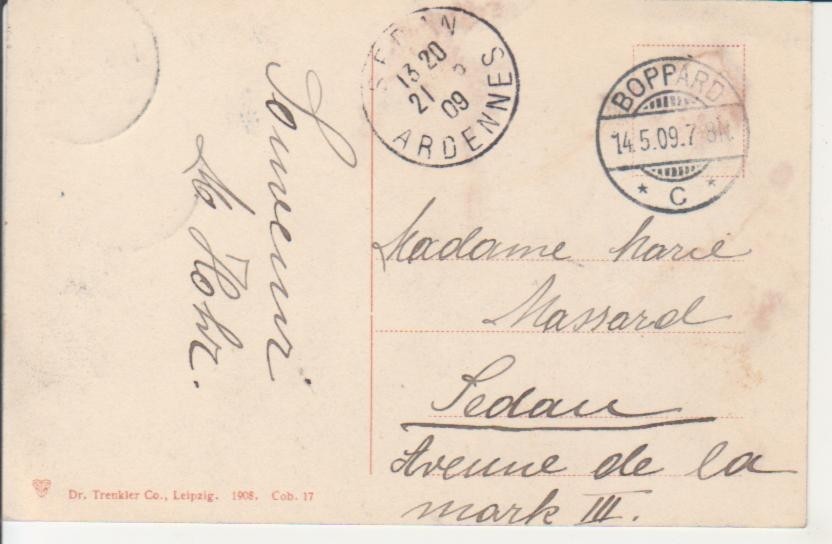 Souvenir
M Hohr.
SEDAN
13 20
21 5
09
ARDENNES
BOPPARD
14.5.09.7-8N.
* C *
Madame Marie
Massard
Sedan
Avenue de la
mark III.
Dr. Trenkler Co., Leipzig. 1908. Cob. 17